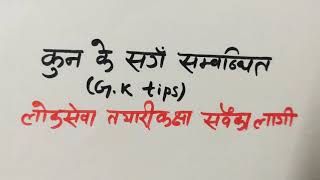 कुन के सगँ सम्बन्धित
(G.K tips)
लोकसेवा तयारीकक्षा सवैका लागी